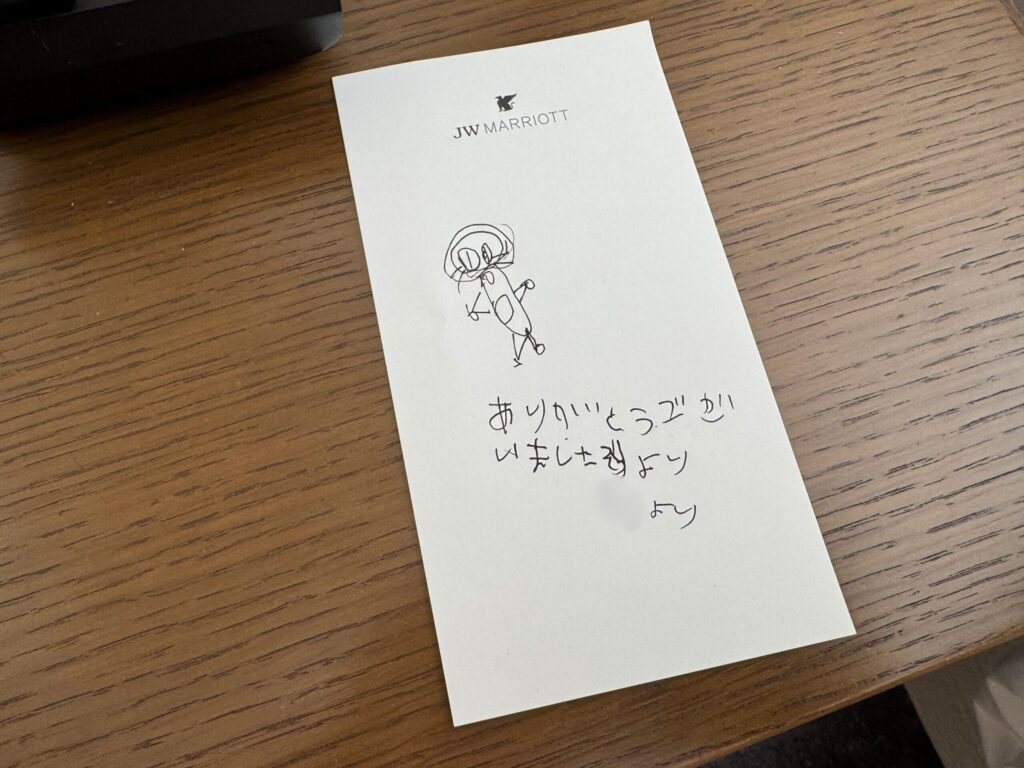 JW MARRIOTT
ありがとうござ
いました より
より